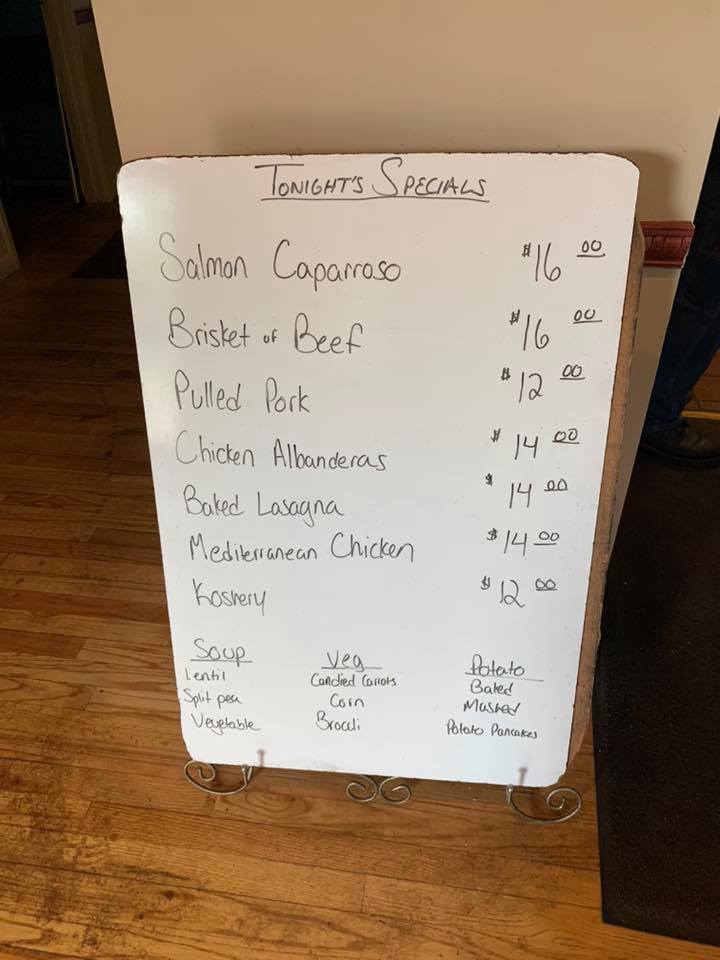 TONIGHT'S SPECIALS
Salmon Caparroso $16 00
Brisket of Beef $16 00
Pulled Pork $12 00
Chicken Albanderas $14 00
Baked Lasagna $14 00
Mediterranean Chicken $14 00
Koshery $12 00
Soup Veg Potato
Lentil Candied Carrots Baked
Split pea Corn Mashed
Vegetable Brocoli Potato Pancakes